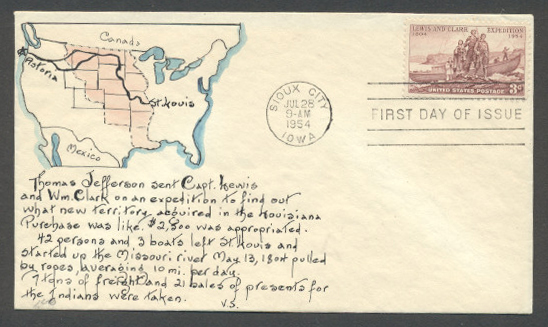 Canada
Astoria
St. Louis
Mexico
LEWIS AND CLARK EXPEDITION
1804 1954
UNITED STATES POSTAGE 3¢
SIOUX CITY
JUL 28
9-AM
1954
IOWA
FIRST DAY OF ISSUE
Thomas Jefferson sent Capt. Lewis
and Wm. Clark on an expedition to find out
what new territory acquired in the Louisiana
Purchase was like. $2,500 was appropriated.
42 persons and 3 boats left St Louis and
started up the Missouri river May 13, 1804 pulled
by ropes, averaging 10 mi. per day.
7 tons of freight and 21 bales of presents for
the Indians were taken. V.S.